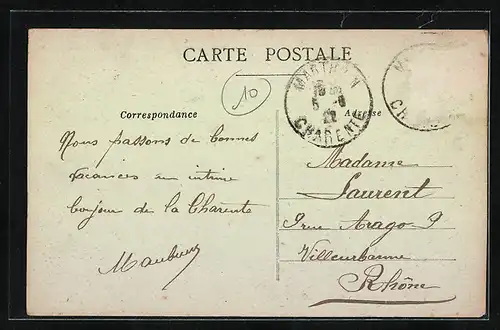 CARTE POSTALE
10
MARTHON
CHARENTE
Correspondance
Adresse
Nous passons de bonnes
vacances en intime
bonjour de la Charente
Madame
Laurent
9 rue Arago 9
Villeurbanne
Rhône